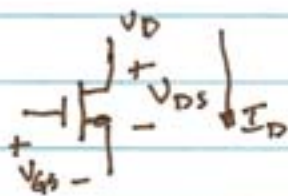 V_D
+
V_DS
-
I_D
+
V_GS -